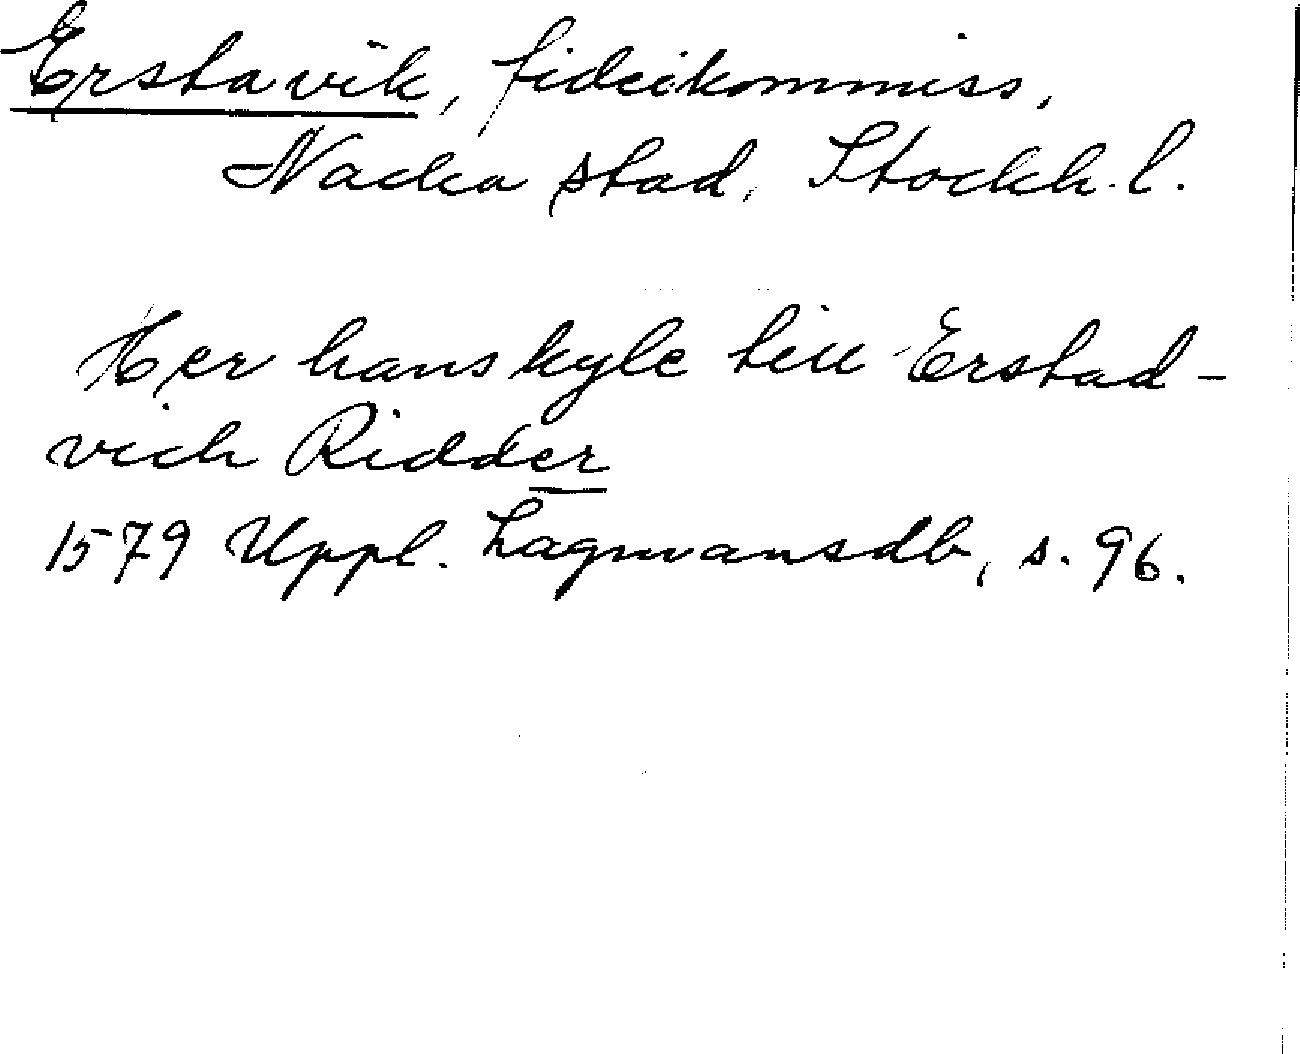 Erstavik, fideikommiss,
Nacka stad, Stockh. l.
Her hans kyle till Erstad-
vich Ridder
1579 Uppl. Lagmansdb, s. 96.